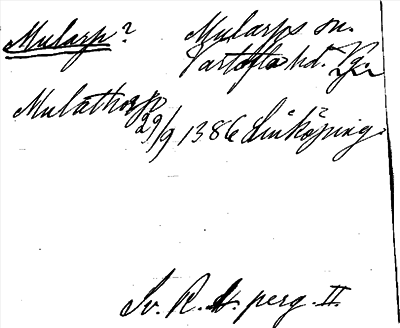 Mularp? Mularps sn.
Vartofta hd. Vg.
Mulathorp
29/9 1386 Linköping.
Sv. R. A. perg. II.